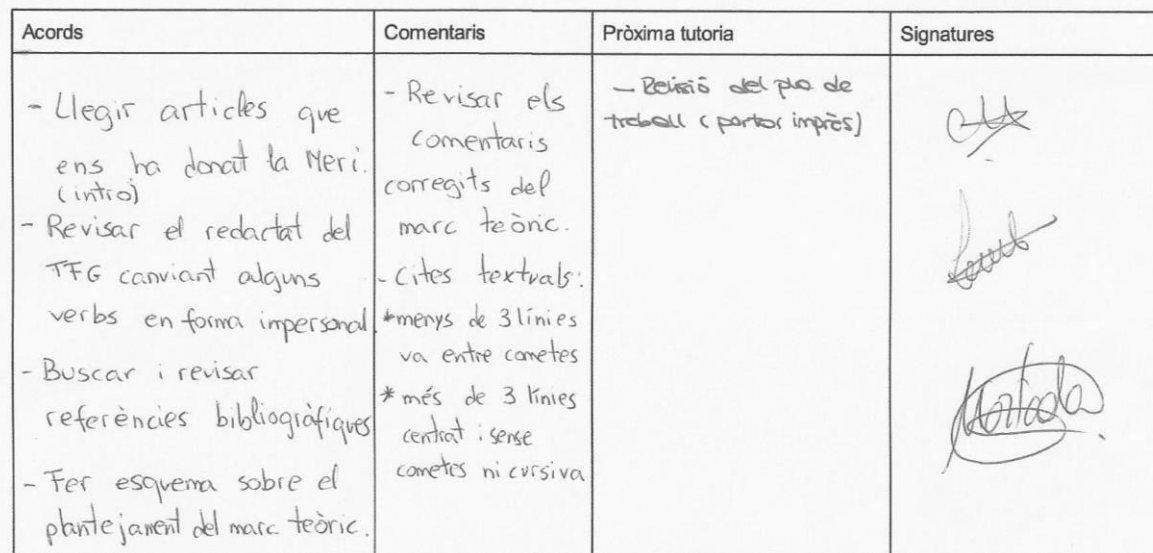 Acords
Comentaris
Pròxima tutoria
Signatures
- Llegir articles que
ens ha donat la Meri.
(intro)
- Revisar el redactat del
TFG canviant alguns
verbs en forma impersonal.
- Buscar i revisar
referències bibliogràfiques
- Fer esquema sobre el
plantejament del marc teòric.
- Revisar els
comentaris
corregits del
marc teòric.
- Cites textuals:
*menys de 3 línies
va entre cometes
* més de 3 línies
centrat i sense
cometes ni cursiva
- Revisió del pla de
treball (portar imprès)